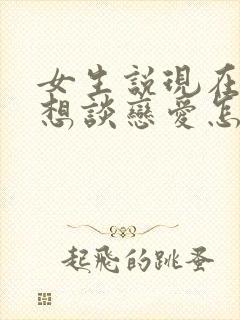 女生説現在
想談戀愛怎
起飛的跳蚤